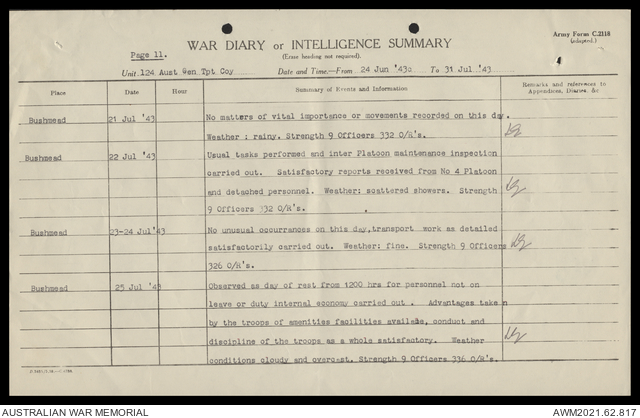 Army Form C.2118
(adapted.)
WAR DIARY or INTELLIGENCE SUMMARY
(Erase heading not required).
Page 11.
Unit 124 Aust Gen Tpt Coy Date and Time—From 24 Jun '43o To 31 Jul '43
Place Date Hour Summary of Events and Information Remarks and references to Appendices, Diaries, &c
Bushmead 21 Jul '43 No matters of vital importance or movements recorded on this day.
Weather : rainy. Strength 9 Officers 332 O/R's.
Bushmead 22 Jul '43 Usual tasks performed and inter Platoon maintenance inspection
carried out. Satisfactory reports received from No 4 Platoon
and detached personnel. Weather: scattered showers. Strength
9 Officers 332 O/R's.
Bushmead 23-24 Jul '43 No unusual occurrances on this day,transport work as detailed
satisfactorily carried out. Weather: fine. Strength 9 Officers
326 O/R's.
Bushmead 25 Jul '43 Observed as day of rest from 1200 hrs for personnel not on
leave or duty internal economy carried out . Advantages taken
by the troops of amenities facilities available, conduct and
discipline of the troops as a whole satisfactory. Weather
conditions cloudy and overcast. Strength 9 Officers 336 O/R's.
AUSTRALIAN WAR MEMORIAL AWM2021.62.817